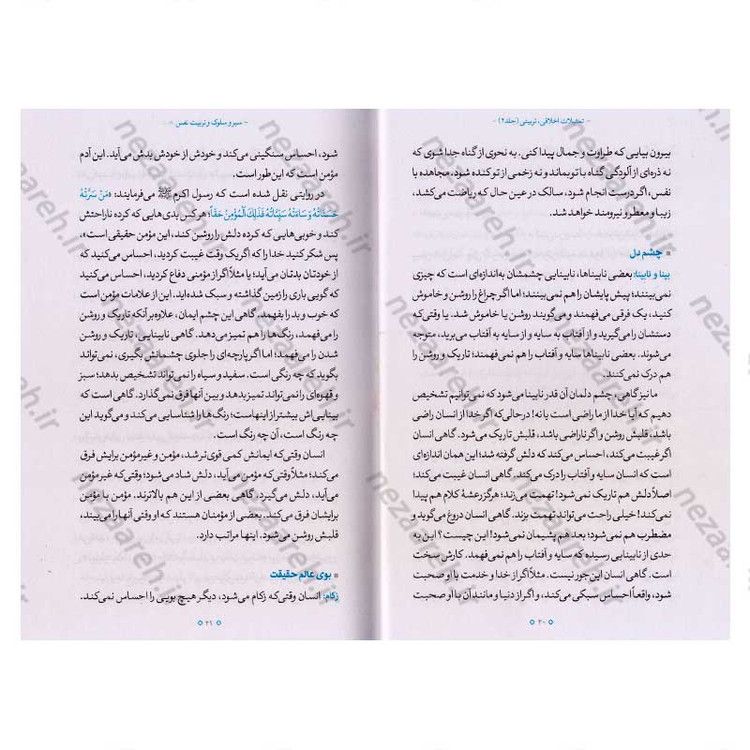 - تمثیلات اخلاقی، تربیتی (جلد۲) -
بیرون بیایی که طراوت و جمال پیدا کنی. به نحوی از گناه جدا شوی که
نه ذره‌ای از آلودگی گناه با تو بماند و نه زخمی از تو کنده شود. مجاهده با
نفس، اگر درست انجام شود، سالک در عین حال که ریاضت می‌کشد،
زیبا و معطر و نیرومند خواهد شد.
چشم دل
بینا و نابینا: بعضی نابیناها، نابینایی چشمشان به‌اندازه‌ای است که چیزی
نمی‌بینند؛ پیش پایشان را هم نمی‌بینند؛ اما اگر چراغ را روشن و خاموش
کنید، یک فرقی می‌فهمند و می‌گویند روشن یا خاموش شد. یا وقتی که
دستشان را می‌گیرید و از آفتاب به سایه و از سایه به آفتاب می‌برید، متوجه
می‌شوند. بعضی نابیناها سایه و آفتاب را هم نمی‌فهمند؛ تاریک و روشن را
هم درک نمی‌کنند.
ما نیز گاهی، چشم دلمان آن قدر نابینا می‌شود که نمی‌توانیم تشخیص
دهیم که آیا خدا از ما راضی است یا نه! درحالی‌که اگر خدا از انسان راضی
باشد، قلبش روشن و اگر ناراضی باشد، قلبش تاریک می‌شود. گاهی انسان
اگر غیبت می‌کند، احساس می‌کند که دلش گرفته شد؛ این همان اندازه‌ای
است که انسان سایه و آفتاب را درک می‌کند. گاهی انسان غیبت می‌کند؛
اصلاً دلش هم تاریک نمی‌شود! تهمت می‌زند؛ هرگز رعشهٔ کلام هم پیدا
نمی‌کند! خیلی راحت می‌تواند تهمت بزند. گاهی انسان دروغ می‌گوید و
مضطرب هم نمی‌شود؛ بعد هم پشیمان نمی‌شود! این چیست؟ این به
حدی از نابینایی رسیده که سایه و آفتاب را هم نمی‌فهمد. کارش سخت
است. گاهی انسان این‌جور نیست. مثلاً اگر از خدا و خدمت با او صحبت
شود، واقعاً احساس سبکی می‌کند، و اگر از دنیا و مانند آن با او صحبت
۲۰
- سیر و سلوک و تربیت نفس -
شود، احساس سنگینی می‌کند و خودش از خودش بدش می‌آید. این آدم
مؤمن است که این‌طور است.
در روایتی نقل شده است که رسول اکرم ﷺ می‌فرمایند: «مَنْ سَرَّتْهُ
حَسَنَاتُهُ وَ سَاءَتْهُ سَيِّئَاتُهُ فَذَلِكَ الْمُؤْمِنُ حَقّاً؛ هر کس بدی‌هایی که کرده ناراحتش
کند و خوبی‌هایی که کرده دلش را روشن کند، این مؤمن حقیقی است»،
پس شکر کنید خدا را که اگر یک وقت غیبت کردید، احساس می‌کنید که
از خودتان بدتان می‌آید؛ یا مثلاً اگر از مؤمنی دفاع کردید، احساس می‌کنید
که گویی باری را زمین گذاشته و سبک شده‌اید. این از علامات مؤمن است
که خوب و بد را بفهمد. گاهی این چشم ایمان، علاوه‌بر آنکه تاریک و روشن
را می‌فهمد، رنگ‌ها را هم تمیز می‌دهد. گاهی نابینایی، تاریک و روشن
شدن را می‌فهمد؛ اما اگر پارچه‌ای را جلوی چشمانش بگیری، نمی‌تواند
بگوید که چه رنگی است. سفید و سیاه را نمی‌تواند تشخیص بدهد؛ سبز
و قهوه‌ای را نمی‌تواند تمیز بدهد و بین آنها فرق نمی‌گذارد. گاهی است که
بینایی‌اش بیشتر از اینهاست؛ رنگ‌ها را شناسایی می‌کند و می‌گوید این
چه رنگ است، آن چه رنگ است.
انسان وقتی‌که ایمانش کمی قوی‌تر شد، مؤمن و غیرمؤمن برایش فرق
می‌کند؛ مثلاً وقتی که مؤمن می‌آید، دلش شاد می‌شود؛ وقتی‌که غیر مؤمن
می‌آید، دلش می‌گیرد. گاهی بعضی از این هم بالاترند. مؤمن با مؤمن
برایشان فرق می‌کند. بعضی از مؤمنان هستند که او وقتی آنها را می‌بیند،
قلبش روشن می‌شود. اینها مراتب دارد.
بوی عالم حقیقت
زکام: انسان وقتی‌که زکام می‌شود، دیگر هیچ بویی را احساس نمی‌کند.
۲۱
nezaareh.ir